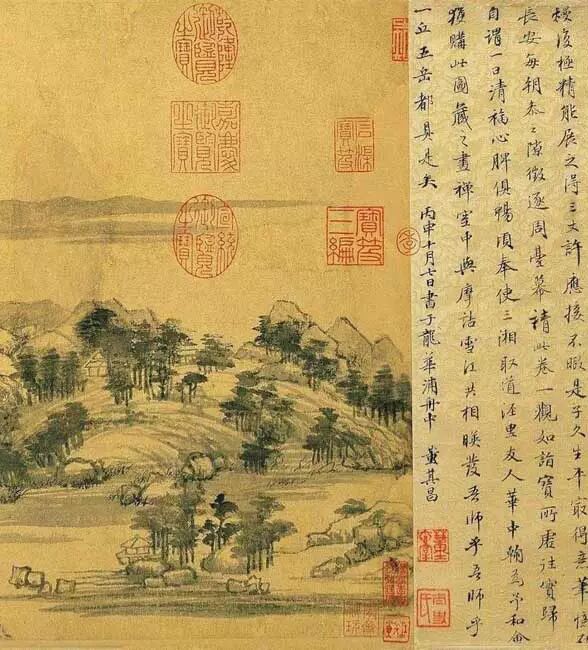 熳復極精能展之得三丈許應接不暇是子久生平最得意筆憶在
長安每朝參之隙徵逐周臺幕請此卷一觀如詣寶所虛往實歸
自謂一日清福心脾俱暢頃奉使三湘取道涇里友人華中翰為予和會
獲購此圖藏之畫禪室中與摩詰雪江共相映發吾師乎吾師乎
一丘五岳都具是矣丙申十月七日書于龍華浦舟中 董其昌
季
石渠寶笈
寶笈三編
乾隆御覽之寶
嘉慶御覽之寶
宣統御覽之寶